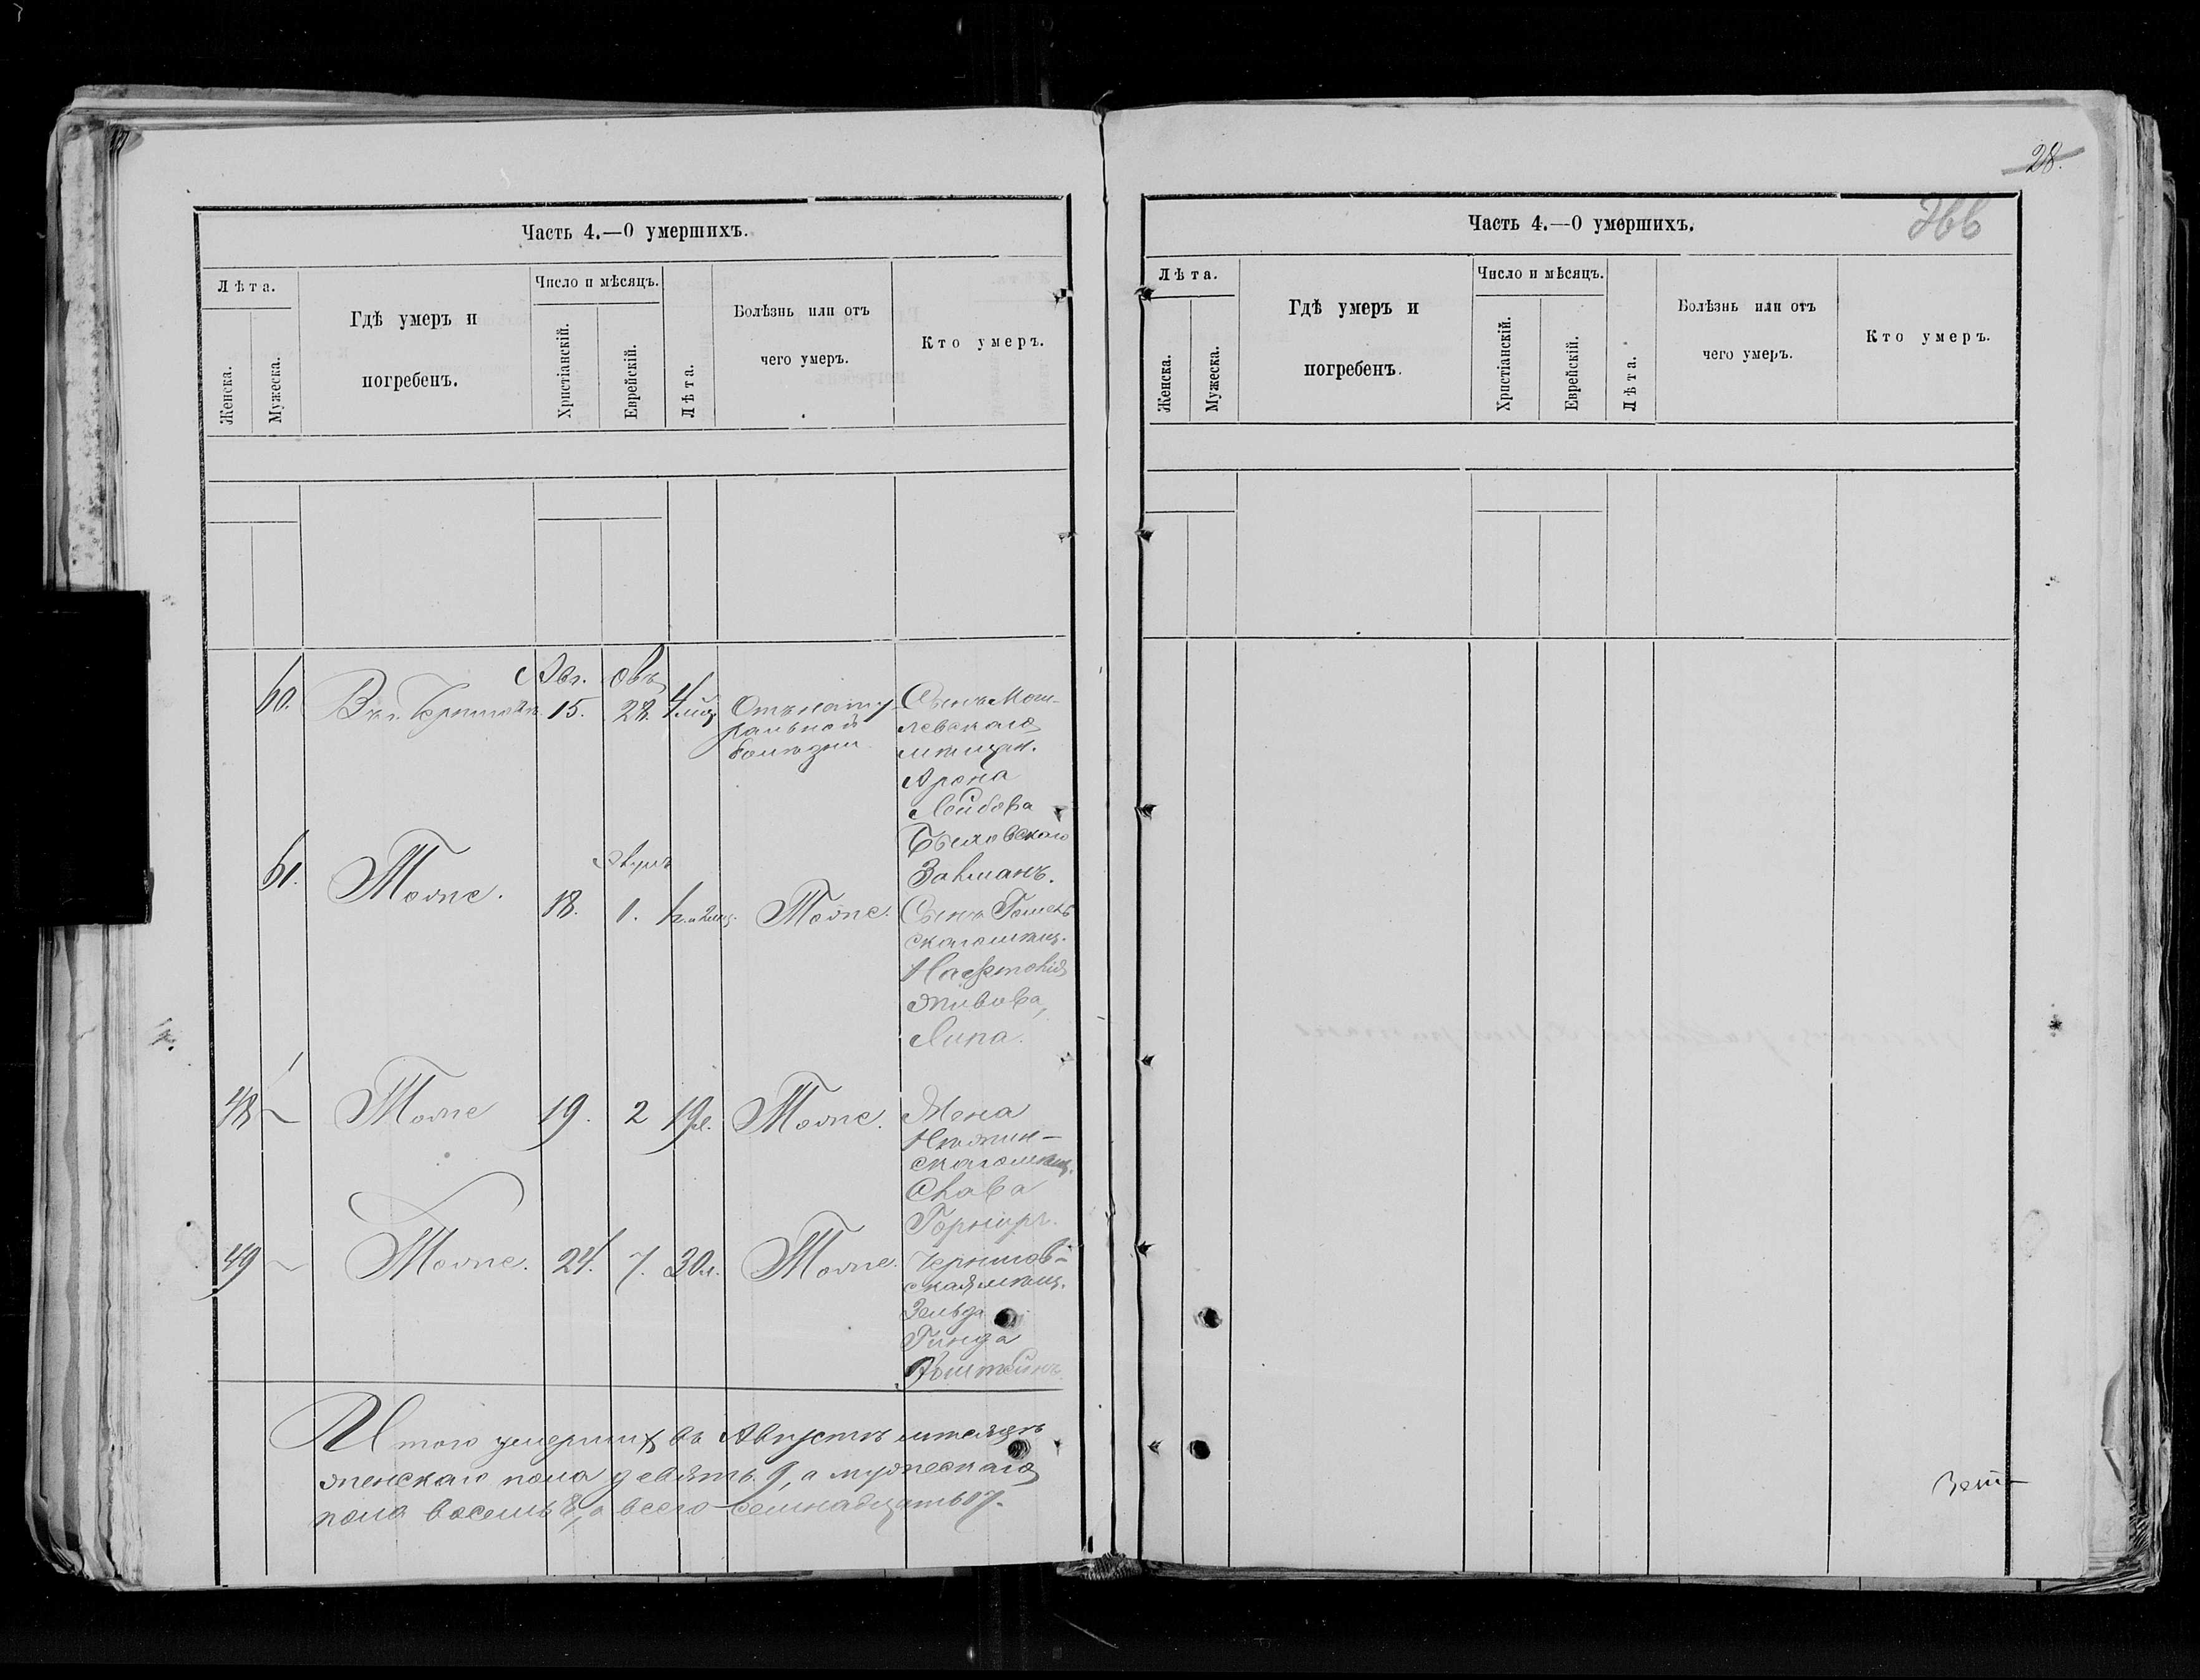 28.
Часть 4.—О умершихъ.
Лѣта.
Женска.
Мужеска.
Гдѣ умеръ и
погребенъ.
Число и мѣсяцъ.
Христіанскій.
Еврейскій.
Лѣта.
Болѣзнь или отъ
чего умеръ.
Кто умеръ.
60.
Въ г. Чернигов.
Авг.
15.
Овъ
28.
4 мѣц
Отъ нату-
ральной
болѣзни
Сынъ Мог-
левскаго
мѣщан.
Арона
Лейбова
Быховскаго
Залманъ.
61.
Тоже.
18.
1.
Тоже.
Сынъ Гомель
скаго мѣщ.
Липа.
48
Тоже
19.
2
19 л.
Тоже.
Жена
Нѣжин-
скаго мѣщ.
Хава
49
Тоже.
24.
7.
30 л.
Тоже.
Чернигов-
ская мѣщ.
Зельда
Гинда
Итого умерших въ Августѣ мѣсяцѣ
женскаго пола девять 9, а мужескаго
пола восемь 8, а всего семнадцать 17.
Часть 4.—О умершихъ.
Лѣта.
Женска.
Мужеска.
Гдѣ умеръ и
погребенъ.
Число и мѣсяцъ.
Христіанскій.
Еврейскій.
Лѣта.
Болѣзнь или отъ
чего умеръ.
Кто умеръ.